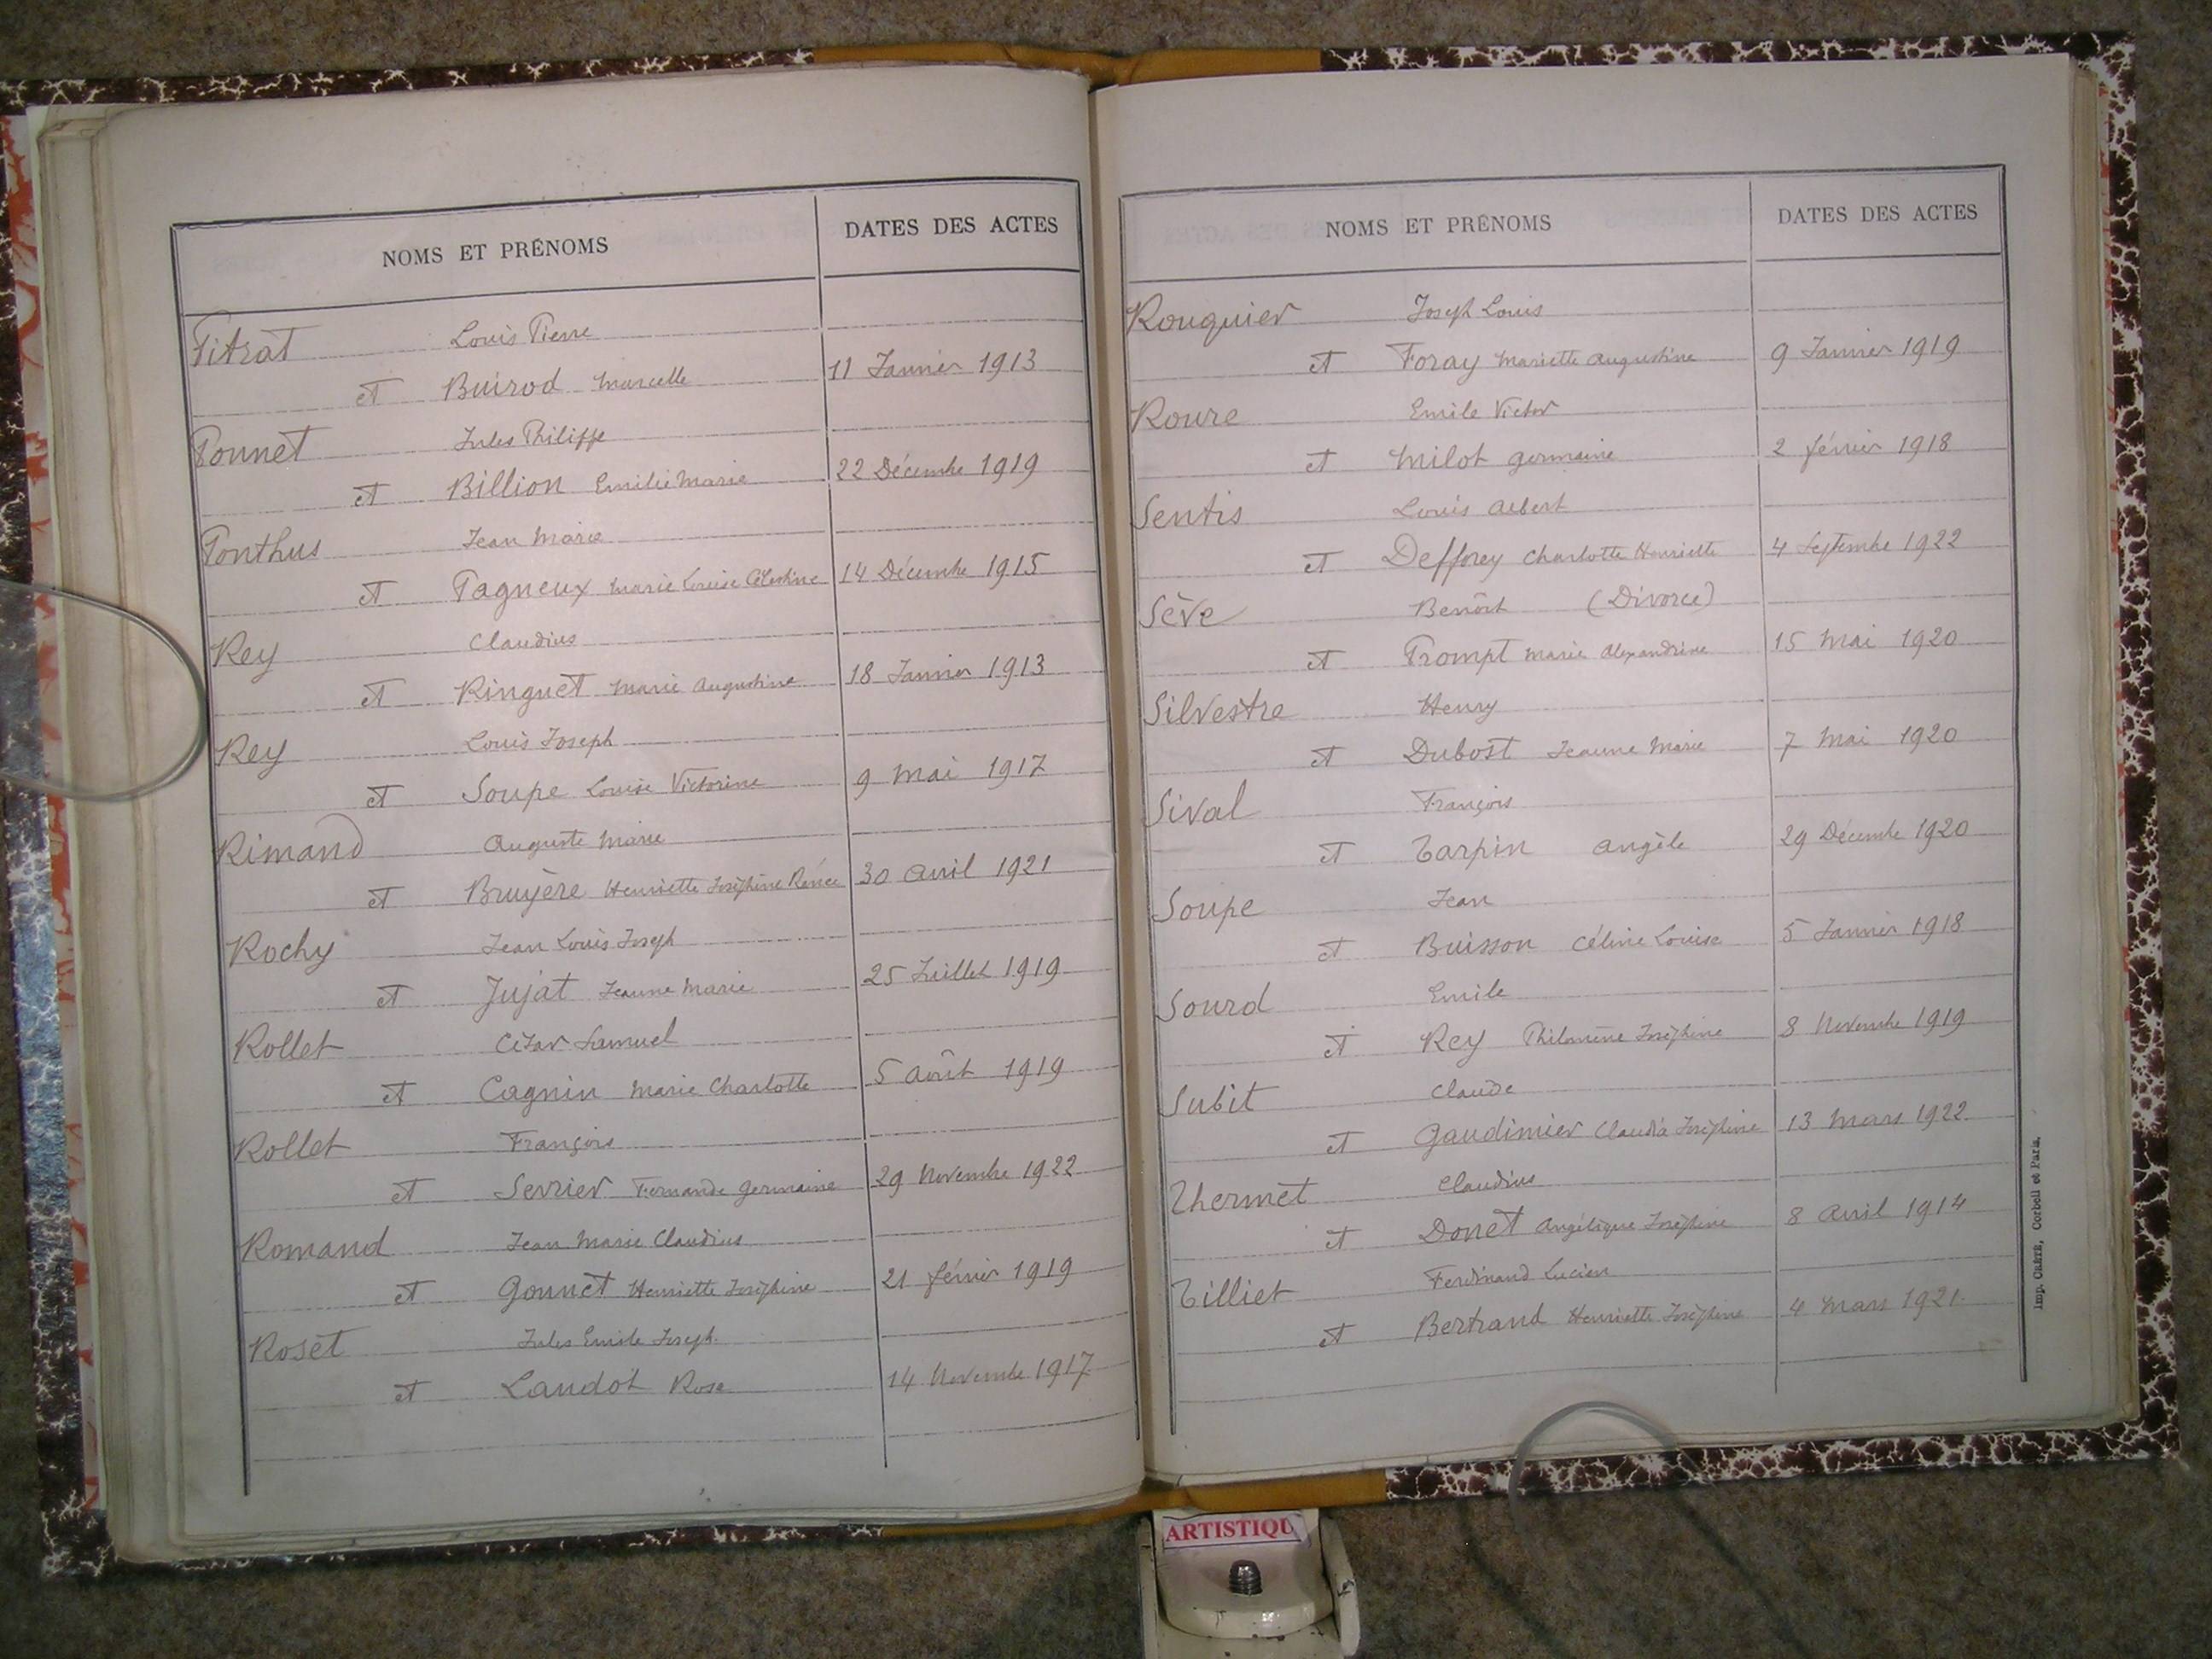 NOMS ET PRÉNOMS DATES DES ACTES
Pitrat Louis Pierre
et Buirod Marcelle 11 Janvier 1913
Ponnet Jules Philippe
et Billion Emilie Marie 22 Décembre 1919
Ponthus Jean Marie
et Pagneux Marie Louise Célestine 14 Décembre 1915
Rey Claudius
et Ringuet Marie Augustine 18 Janvier 1913
Rey Louis Joseph
et Soupe Louise Victorine 9 Mai 1917
Rimand Auguste Marie
et Bruyère Henriette Joséphine Renée 30 Avril 1921
Rochy Jean Louis Joseph
et Jujat Jeanne Marie 25 Juillet 1919
Rollet César Samuel
et Cagnin Marie Charlotte 5 Août 1919
Rollet François
et Sevrier Fernande Germaine 29 Novembre 1922
Romand Jean Marie Claudius
et Gonnet Henriette Joséphine 21 février 1919
Roset Jules Emile Joseph
et Landot Rose 14 Novembre 1917
NOMS ET PRÉNOMS DATES DES ACTES
Rouquier Joseph Louis
et Foray Mariette Augustine 9 Janvier 1919
Roure Emile Victor
et Milot Germaine 2 février 1918
Sentis Louis Albert
et Defforey Charlotte Henriette 4 Septembre 1922
Sève Benoît (Divorce)
et Prompt Marie Alexandrine 15 Mai 1920
Silvestre Henry
et Dubost Jeanne Marie 7 Mai 1920
Sival François
et Tarpin Angèle 29 Décembre 1920
Soupe Jean
et Buisson Céline Louise 5 Janvier 1918
Sourd Emile
et Rey Philomène Joséphine 8 Novembre 1919
Subit Claude
et Gaudimier Claudia Joséphine 13 Mars 1922
Thermet Claudius
et Donet Angélique Joséphine 8 Avril 1914
Tilliet Ferdinand Lucien
et Bertrand Henriette Joséphine 4 Mars 1921
Imp. CRÉTÉ, Corbeil et Paris.
ARTISTIQU